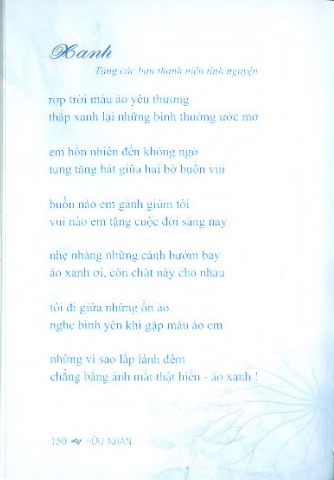 Xanh
Tặng các bạn thanh niên tình nguyện
rợp trời màu áo yêu thương
thắp xanh lại những bình thường ước mơ
em hồn nhiên đến không ngờ
tung tăng hát giữa hai bờ buồn vui
buồn nào em gánh giùm tôi
vui nào em tặng cuộc đời sáng nay
nhẹ nhàng những cánh bướm bay
áo xanh ơi, còn chút này cho nhau
tôi đi giữa những ồn ào
nghe bình yên khi gặp màu áo em
những vì sao lấp lánh đêm
chẳng bằng ánh mắt thật hiền - áo xanh !
150 HỮU NHÂN